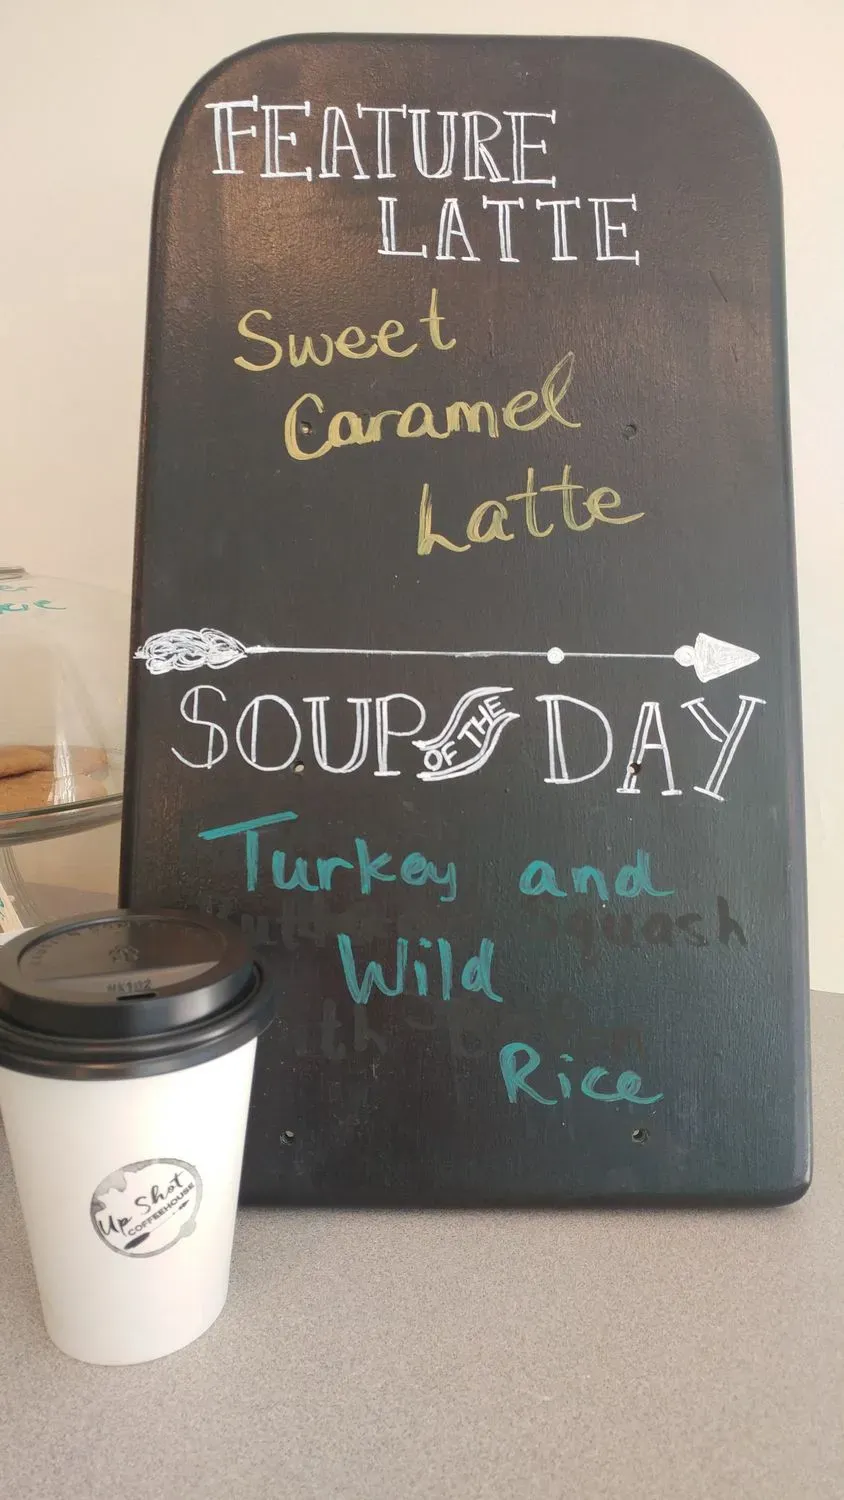 FEATURE
LATTE
Sweet
Caramel
Latte
SOUP OF THE DAY
Turkey and
Squash
Wild
Rice
Up Shot
COFFEEHOUSE